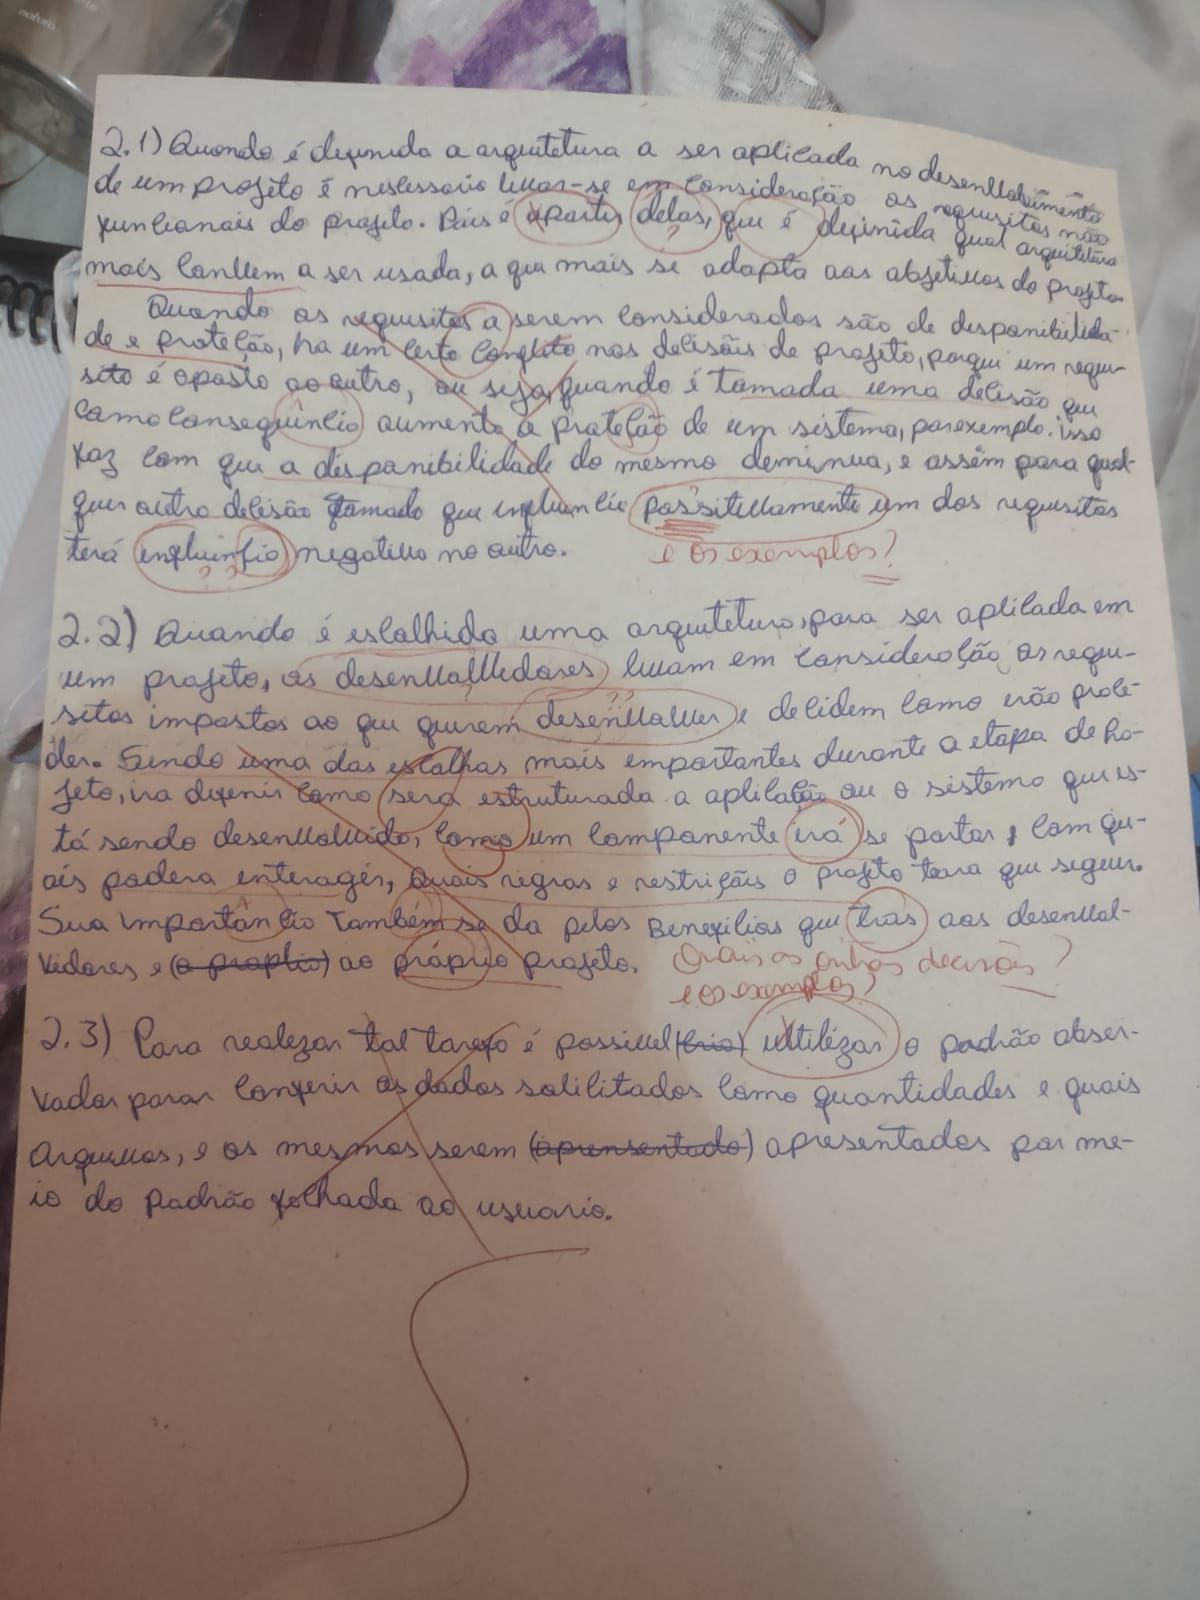 natura
2.1) Quando é definida a arquitetura a ser aplicada no desenvolvimento
de um projeto é nescessario levar-se em consideração os requisitos não
funcionais do projeto. Pois é apartir delos, que é definida qual arquitetura
mais convem a ser usada, a que mais se adapta aos objetivos do projeto.
Quando os requisitos a serem considerados são de disponibilida-
de e proteção, ha um certo conflito nas decisões de projeto, porque um requi-
sito é oposto ao outro, ou seja, quando é tomada uma decisão que
como consequência aumenta a proteção de um sistema, por exemplo. isso
faz com que a disponibilidade do mesmo deminua, e assim para qual-
quer outra decisão tomada que influencie possitivamente um dos requisitos
terá influência negativa no outro.
e os exemplos?
2.2) Quando é escolhida uma arquitetura, para ser aplicada em
um projeto, os desenvolvedores levam em consideração os requi-
sitos impostos ao que querem desenvolver e decidem como irão proce-
der. Sendo uma das escolhas mais importantes durante a etapa de Pro-
jeto, ira definir como sera estruturada a aplicação ou o sistema que es-
tá sendo desenvolvido, como um componente irá se portar, com qu-
ais podera enteragir, quais regras e restrições o projeto tera que seguir.
Sua importância também se da pelos Beneficios que tras aos desenvol-
vedores e (o proprio) ao próprio projeto.
Quais as outras decisões?
e os exemplos?
2.3) Para realizar tal tarefa é possivel (cria) utilizar o padrão obser-
vador parar conferir os dados solicitados como quantidades e quais
arquivos, e os mesmos serem (aprensentado) apresentados por me-
io do padrão folhada ao usuario.